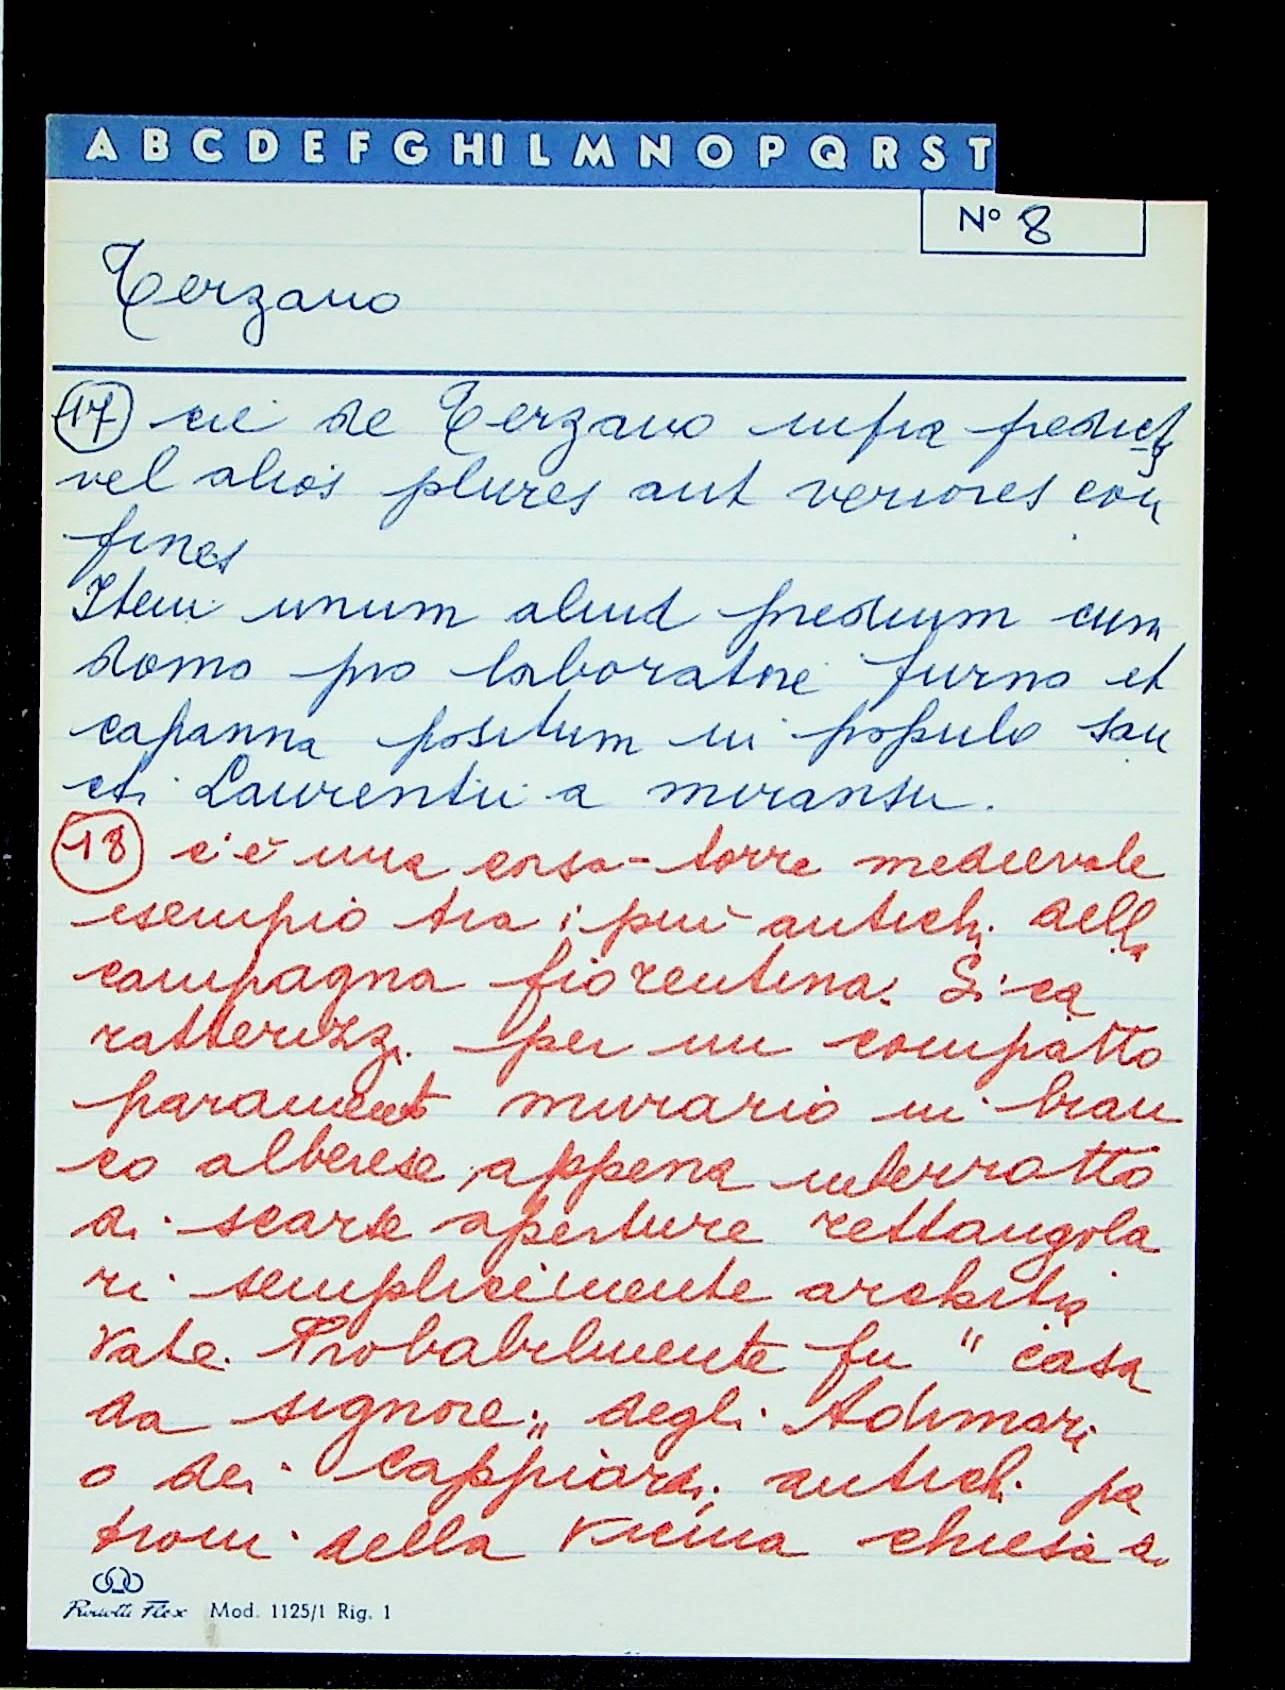 A B C D E F G HI L M N O P Q R S T
Nº 8
Terzano
17 cie de Terzano infra predictos
vel alios plures aut veriores con
fines
Item unum aliud predium cum
domo pro laboratore furno et
capanna positum in populo san
cti Laurentii a
18 c'è una casa-torre medievale
esempio tra i più antichi della
campagna fiorentina. Si ca
ratterizza per un compatto
paramento murario in bian
co alberese, appena interrotto
di scarse aperture rettangola
ri semplicemente architra
vate. Probabilmente fu "casa
da signore" degli Adimari
o dei Cappiardi, antichi pa
troni della vicina chiesa di
Mod. 1125/1 Rig. 1